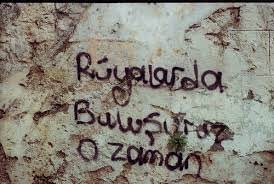 Rüyalarda
Buluşuruz
O zaman